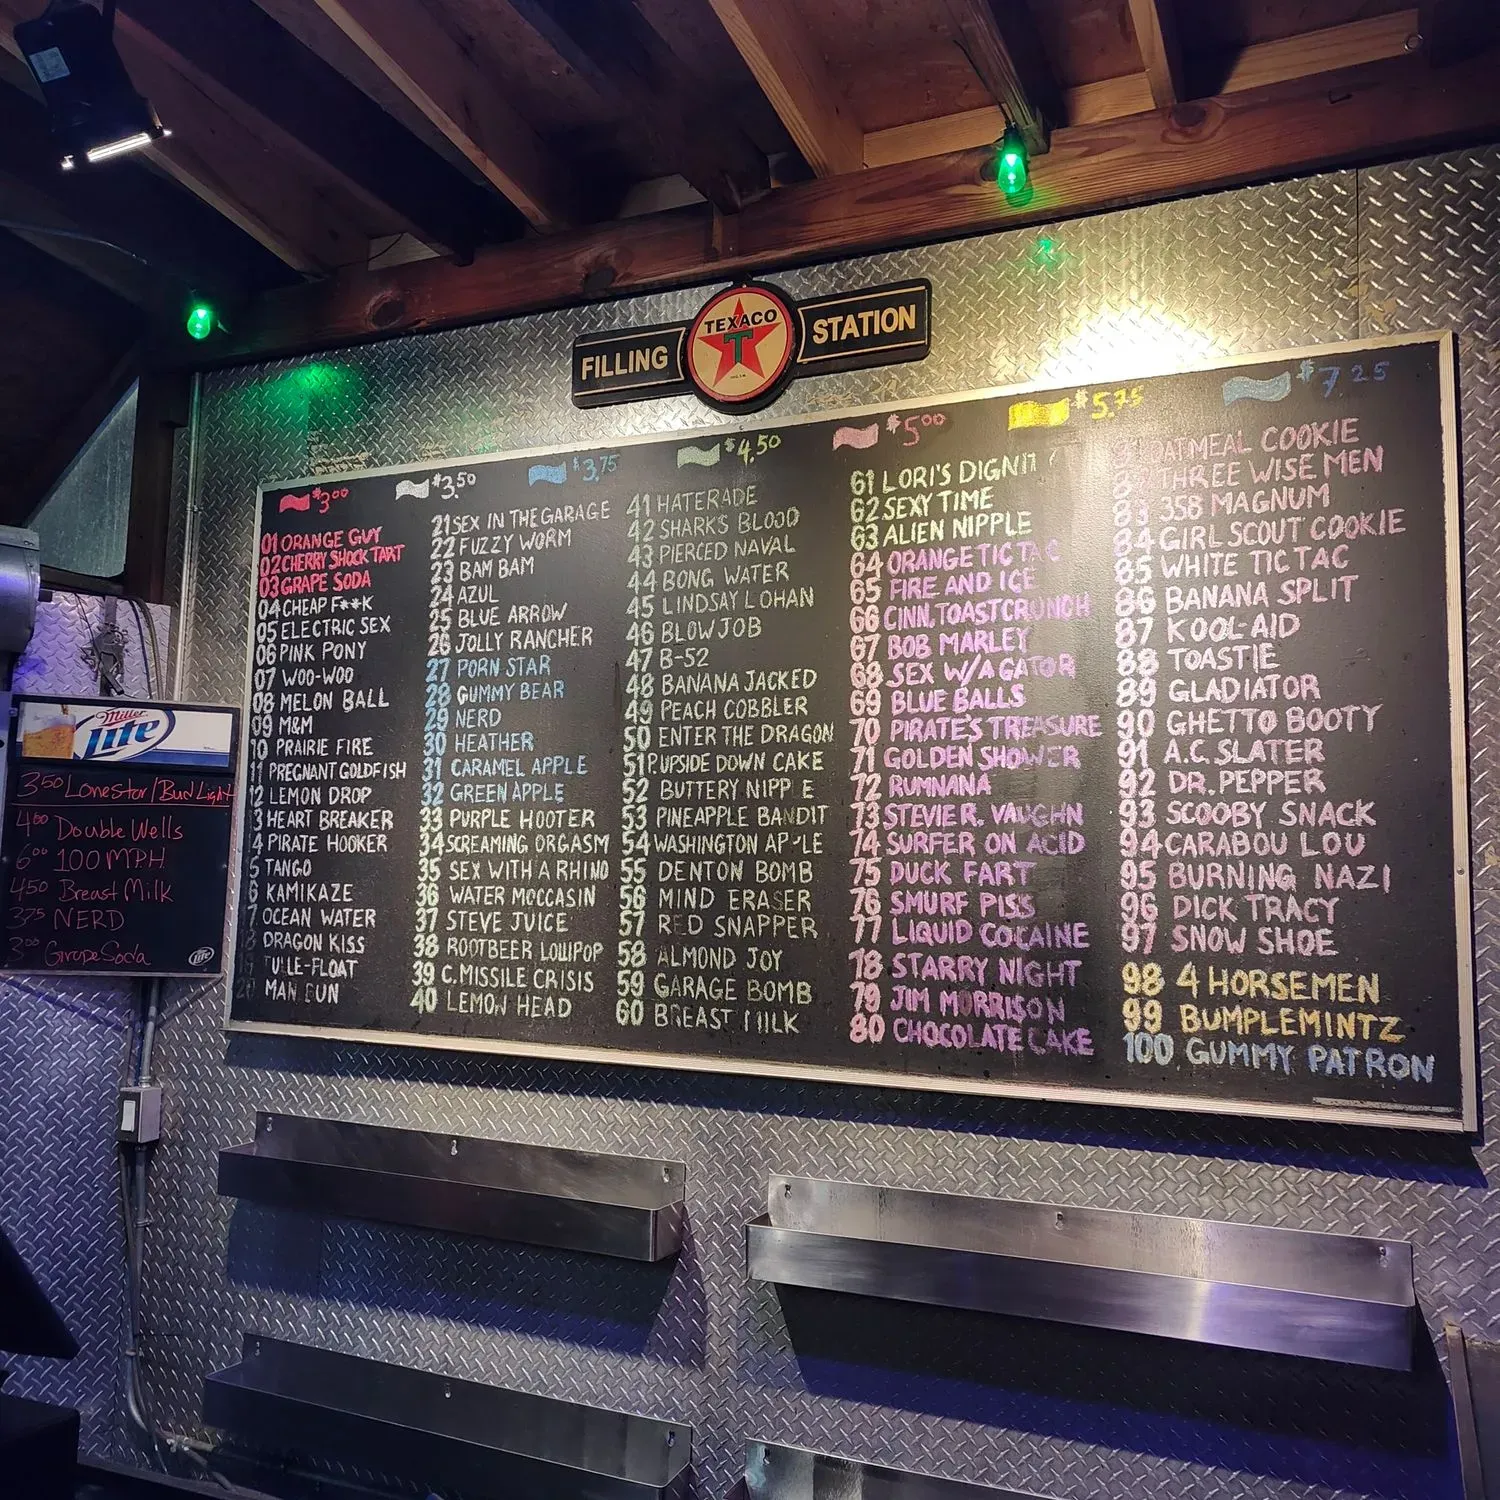 FILLING TEXACO T STATION
$3.00 $3.50 $3.75 $4.50 $5.00 $5.75 $7.25
01 ORANGE GUY
02 CHERRY SHOCK TART
03 GRAPE SODA
04 CHEAP F**K
05 ELECTRIC SEX
06 PINK PONY
07 WOO-WOO
08 MELON BALL
09 M&M
10 PRAIRIE FIRE
11 PREGNANT GOLDFISH
12 LEMON DROP
3 HEART BREAKER
4 PIRATE HOOKER
5 TANGO
6 KAMIKAZE
7 OCEAN WATER
18 DRAGON KISS
FLOAT
MAN
21 SEX IN THE GARAGE
22 FUZZY WORM
23 BAM BAM
24 AZUL
25 BLUE ARROW
26 JOLLY RANCHER
27 PORN STAR
28 GUMMY BEAR
29 NERD
30 HEATHER
31 CARAMEL APPLE
32 GREEN APPLE
33 PURPLE HOOTER
34 SCREAMING ORGASM
35 SEX WITH A RHINO
36 WATER MOCCASIN
37 STEVE JUICE
38 ROOTBEER LOLLIPOP
39 C.MISSILE CRISIS
40 LEMON HEAD
41 HATERADE
42 SHARKS BLOOD
43 PIERCED NAVAL
44 BONG WATER
45 LINDSAY LOHAN
46 BLOWJOB
47 B-52
48 BANANA JACKED
49 PEACH COBBLER
50 ENTER THE DRAGON
51 P.UPSIDE DOWN CAKE
52 BUTTERY NIPP E
53 PINEAPPLE BANDIT
54 WASHINGTON APPLE
55 DENTON BOMB
56 MIND ERASER
57 RED SNAPPER
58 ALMOND JOY
59 GARAGE BOMB
60 BREAST MILK
61 LORI'S
62 SEXY TIME
63 ALIEN NIPPLE
64 ORANGE TIC TAC
65 FIRE AND ICE
66 CINN.TOAST CRUNCH
67 BOB MARLEY
68 SEX W/A GATOR
69 BLUE BALLS
70 PIRATE'S TREASURE
71 GOLDEN SHOWER
72 RUMNANA
73 STEVIE R. VAUGHN
74 SURFER ON ACID
75 DUCK FART
76 SMURF PISS
77 LIQUID COCAINE
78 STARRY NIGHT
79 JIM MORRISON
80 CHOCOLATE CAKE
OATMEAL COOKIE
THREE WISE MEN
83 358 MAGNUM
84 GIRL SCOUT COOKIE
85 WHITE TIC TAC
86 BANANA SPLIT
87 KOOL-AID
88 TOASTIE
89 GLADIATOR
90 GHETTO BOOTY
91 A.C.SLATER
92 DR.PEPPER
93 SCOOBY SNACK
94 CARABOU LOU
95 BURNING NAZI
96 DICK TRACY
97 SNOW SHOE
98 4 HORSEMEN
99 BUMPLEMINTZ
100 GUMMY PATRON
Miller
Lite
3.50 Lonestar/Bud Light
4.00 Double Wells
6.00 100 MPH
4.50 Breast Milk
3.75 NERD
3.00 Grape Soda
Lite